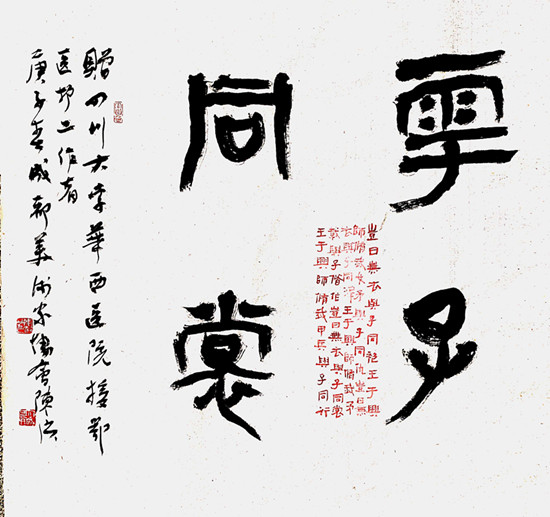 與子
同裳
豈曰無衣與子同袍王于興
師脩我戈矛與子同仇豈曰無
衣與子同澤王于興師脩我矛
戟與子偕作豈曰無衣與子同裳
王于興師脩我甲兵與子同行
贈四川大学華西医院援鄂
医护工作者
庚子春成都美術家協會陳